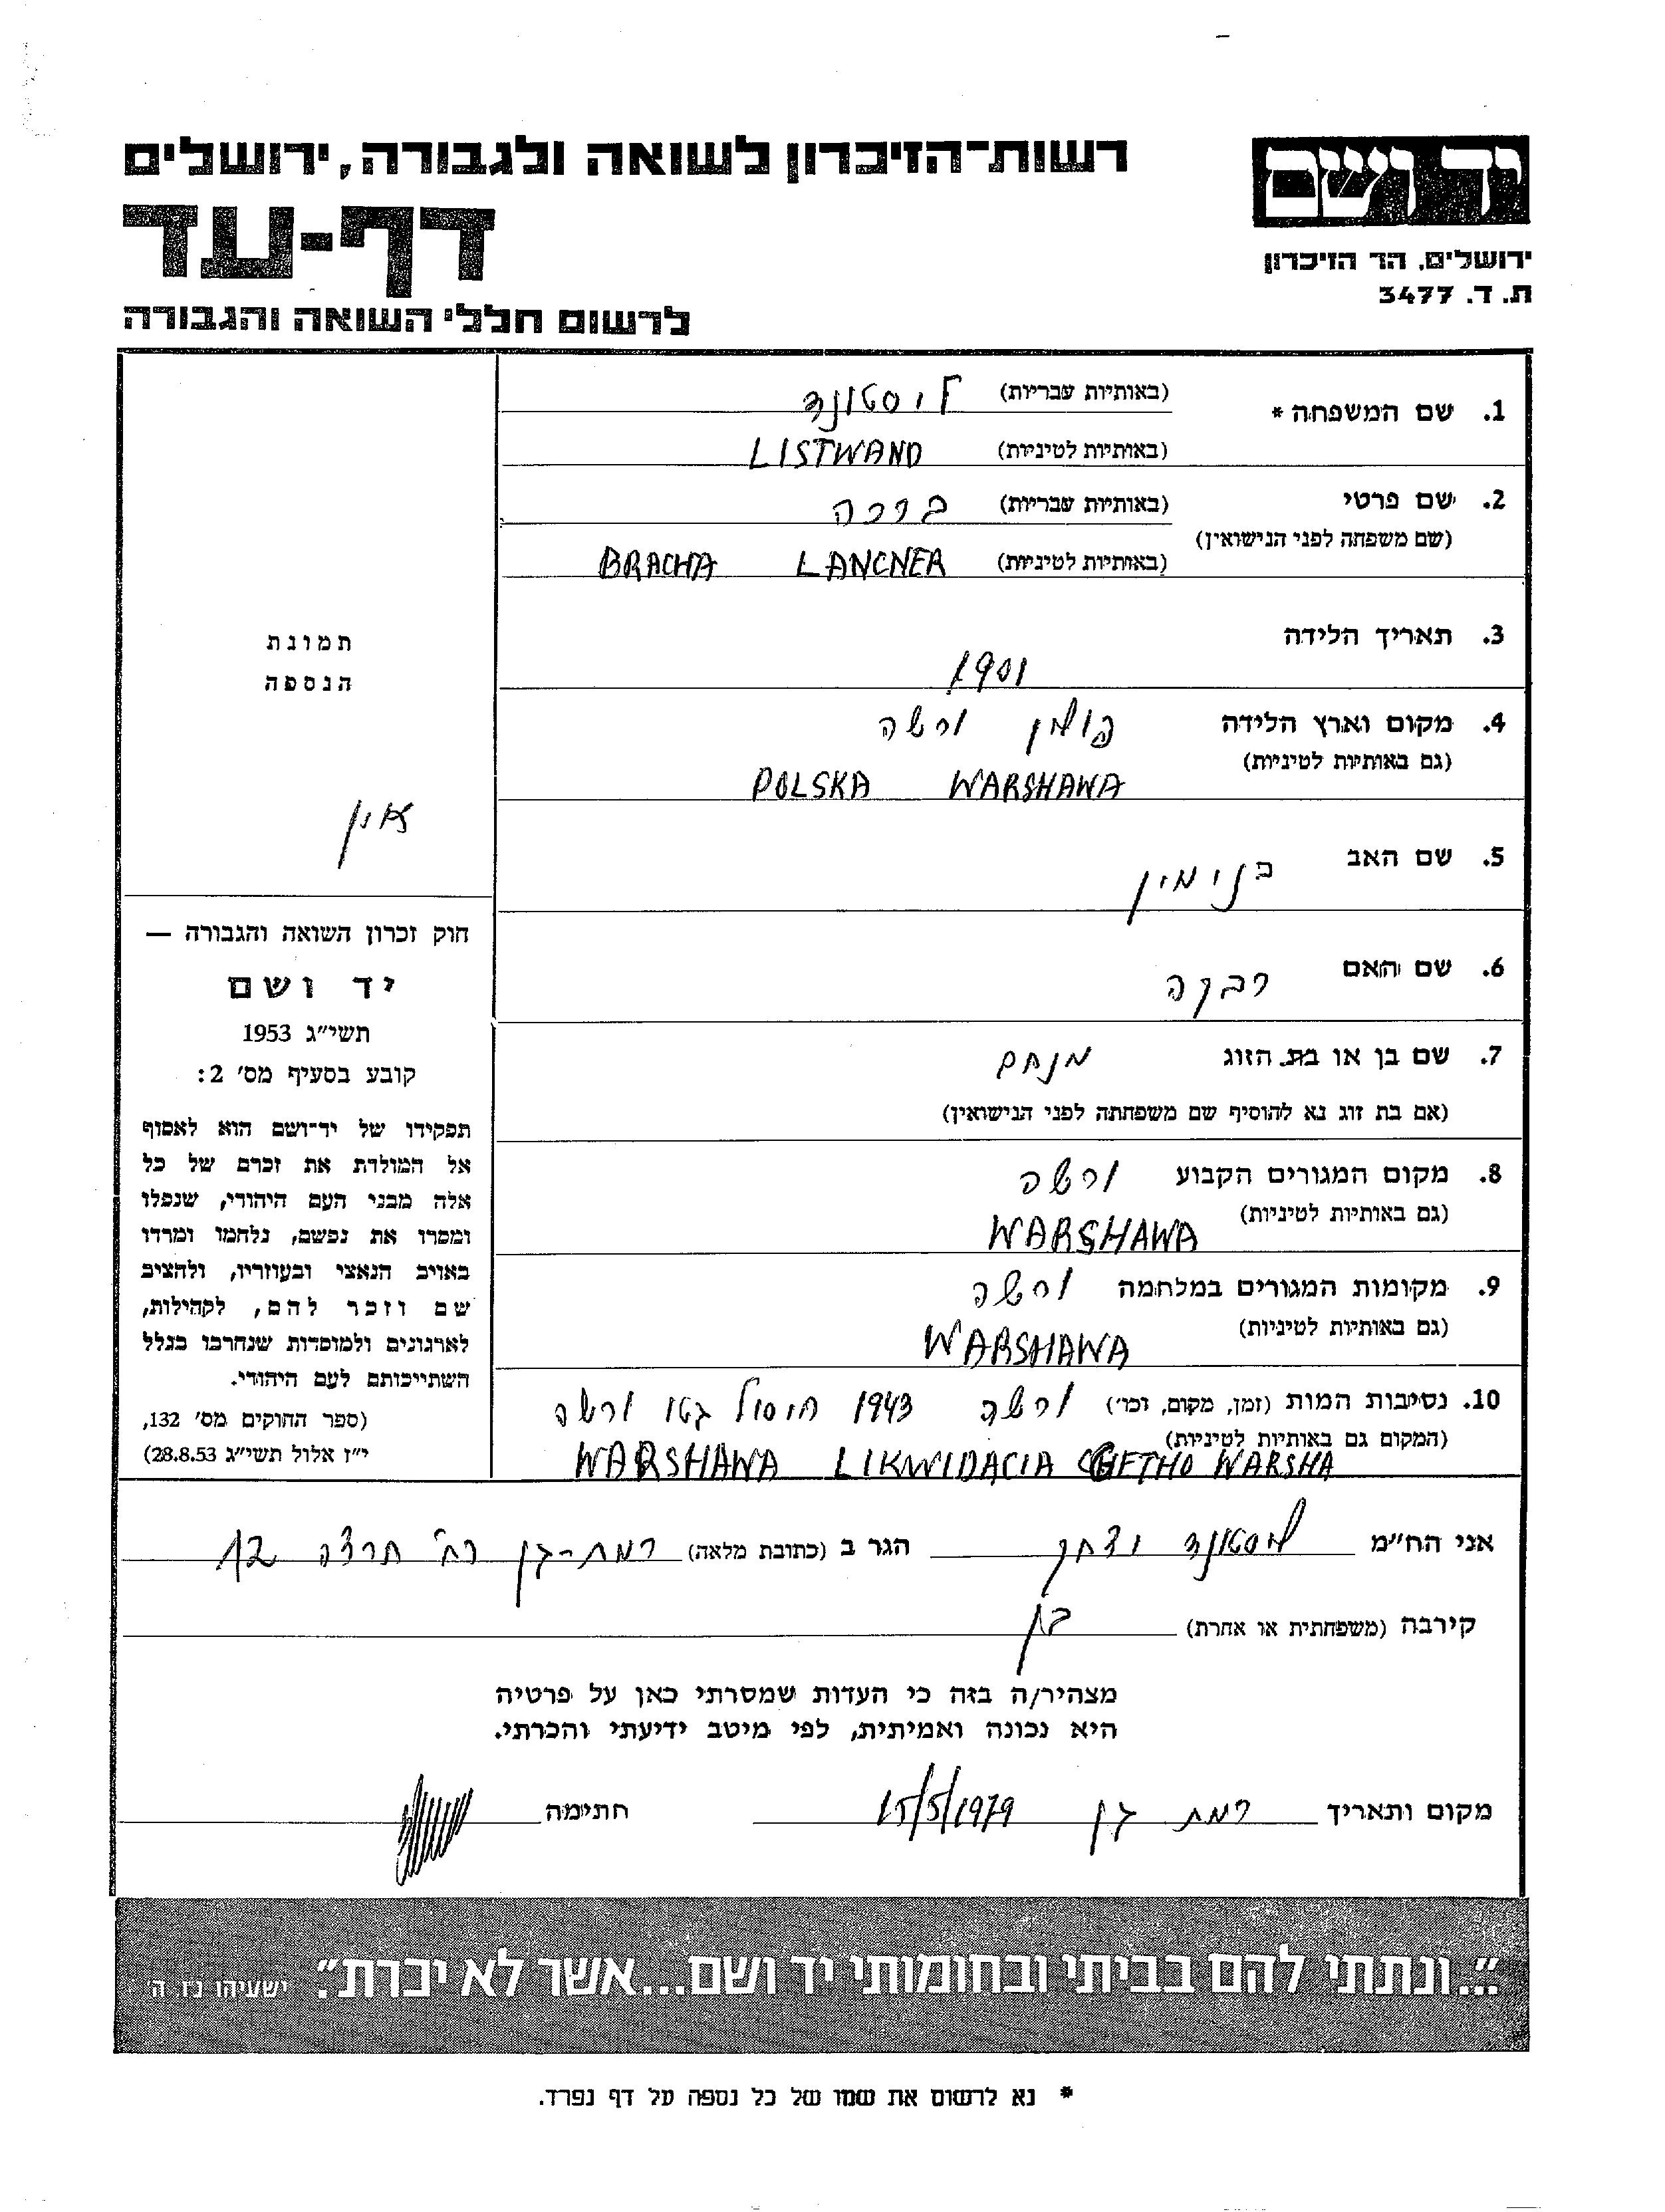 רשות-הזיכרון לשואה ולגבורה, ירושלים
דף-עד
לרשום חללי השואה והגבורה
יד ושם
ירושלים, הר הזיכרון
ת. ד. 3477
1. שם המשפחה * (באותיות עבריות) ליסטונד
(באותיות לטיניות) LISTWAND
2. שם פרטי (באותיות עבריות) ברכה
(שם משפחה לפני הנישואין)
(באותיות לטיניות) BRACHA LANCNER
3. תאריך הלידה
1901
4. מקום וארץ הלידה פולין ורשה
(גם באותיות לטיניות)
POLSKA WARSHAWA
5. שם האב בנימין
6. שם האם רבקה
7. שם בן או בת הזוג מנחם
(אם בת זוג נא להוסיף שם משפחתה לפני הנישואין)
8. מקום המגורים הקבוע ורשה
(גם באותיות לטיניות)
WARSHAWA
9. מקומות המגורים במלחמה ורשה
(גם באותיות לטיניות)
WARSHAWA
10. נסיבות המות (זמן, מקום, וכו') ורשה 1943 חיסול גטו ורשה
(המקום גם באותיות לטיניות)
WARSHAWA LIKWIDACIA GHETHO WARSHA
תמונת
הנספה
אין
חוק זכרון השואה והגבורה —
יד ושם
תשי״ג 1953
קובע בסעיף מס' 2:
תפקידו של יד־ושם הוא לאסוף
אל המולדת את זכרם של כל
אלה מבני העם היהודי, שנפלו
ומסרו את נפשם, נלחמו ומרדו
באויב הנאצי ובעוזריו, ולהציב
שם וזכר להם, לקהילות,
לארגונים ולמוסדות שנחרבו בגלל
השתייכותם לעם היהודי.
(ספר החוקים מס' 132,
י״ז אלול תשי״ג 28.8.53)
אני הח״מ ליסטונד יצחק הגר ב (כתובת מלאה) רמת-גן רח' תרצה 12
קירבה (משפחתית או אחרת) בן
מצהיר/ה בזה כי העדות שמסרתי כאן על פרטיה
היא נכונה ואמיתית, לפי מיטב ידיעתי והכרתי.
מקום ותאריך רמת גן 15/5/1979 חתימה
"...ונתתי להם בביתי ובחומותי יד ושם...אשר לא יכרת". ישעיהו נו, ה'
* נא לרשום את שמו של כל נספה על דף נפרד.